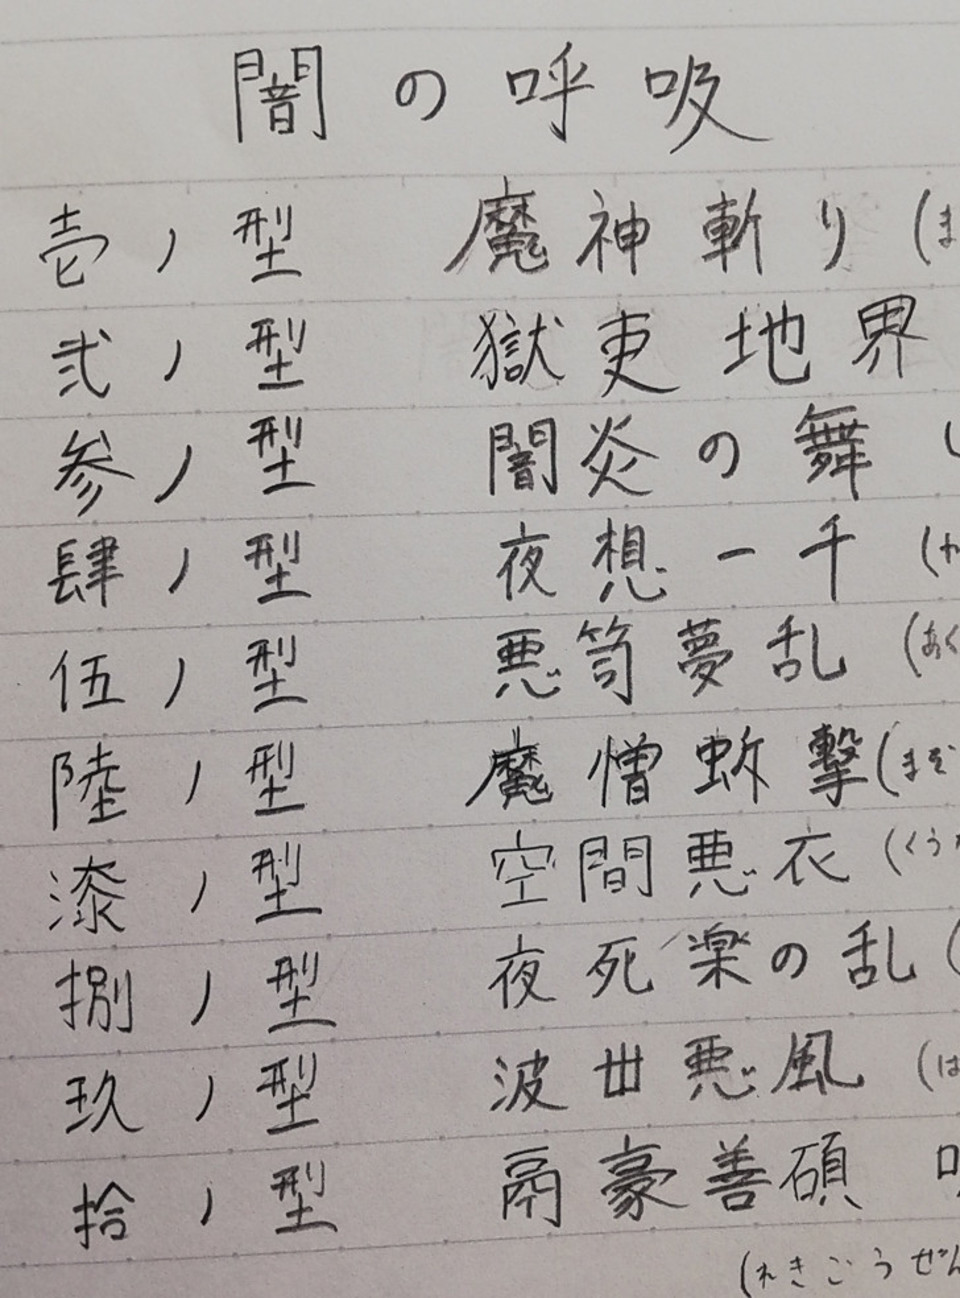 闇の呼吸
壱ノ型 魔神斬り(ま
弐ノ型 獄吏地界
参ノ型 闇炎の舞
肆ノ型 夜想一千(や
伍ノ型 悪夢乱(あく
陸ノ型 魔憎撃(まぞ
漆ノ型 空間悪衣(くうか
捌ノ型 夜死楽の乱(
玖ノ型 波丗悪風(は
拾ノ型 鬲豪善碩
(れきごうぜん